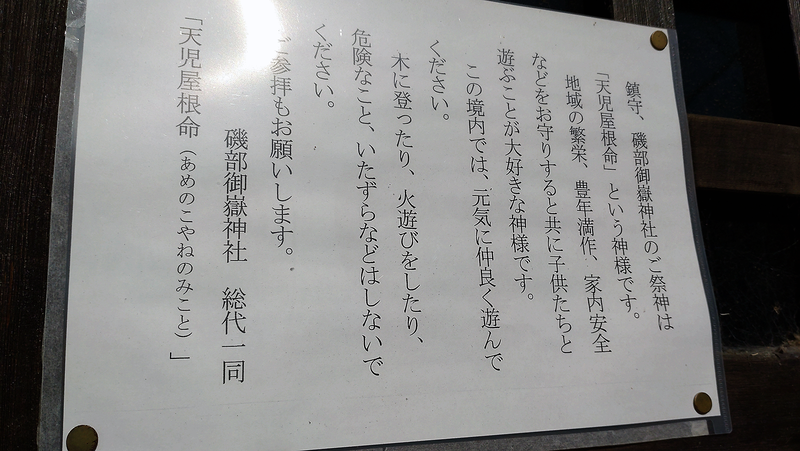 鎮守、磯部御嶽神社のご祭神は
「天児屋根命」という神様です。
地域の繁栄、豊年満作、家内安全
などをお守りすると共に子供たちと
遊ぶことが大好きな神様です。
この境内では、元気に仲良く遊んで
ください。
木に登ったり、火遊びをしたり、
危険なこと、いたずらなどはしないで
ください。
ご参拝もお願いします。
磯部御嶽神社 総代一同
「天児屋根命（あめのこやねのみこと）」